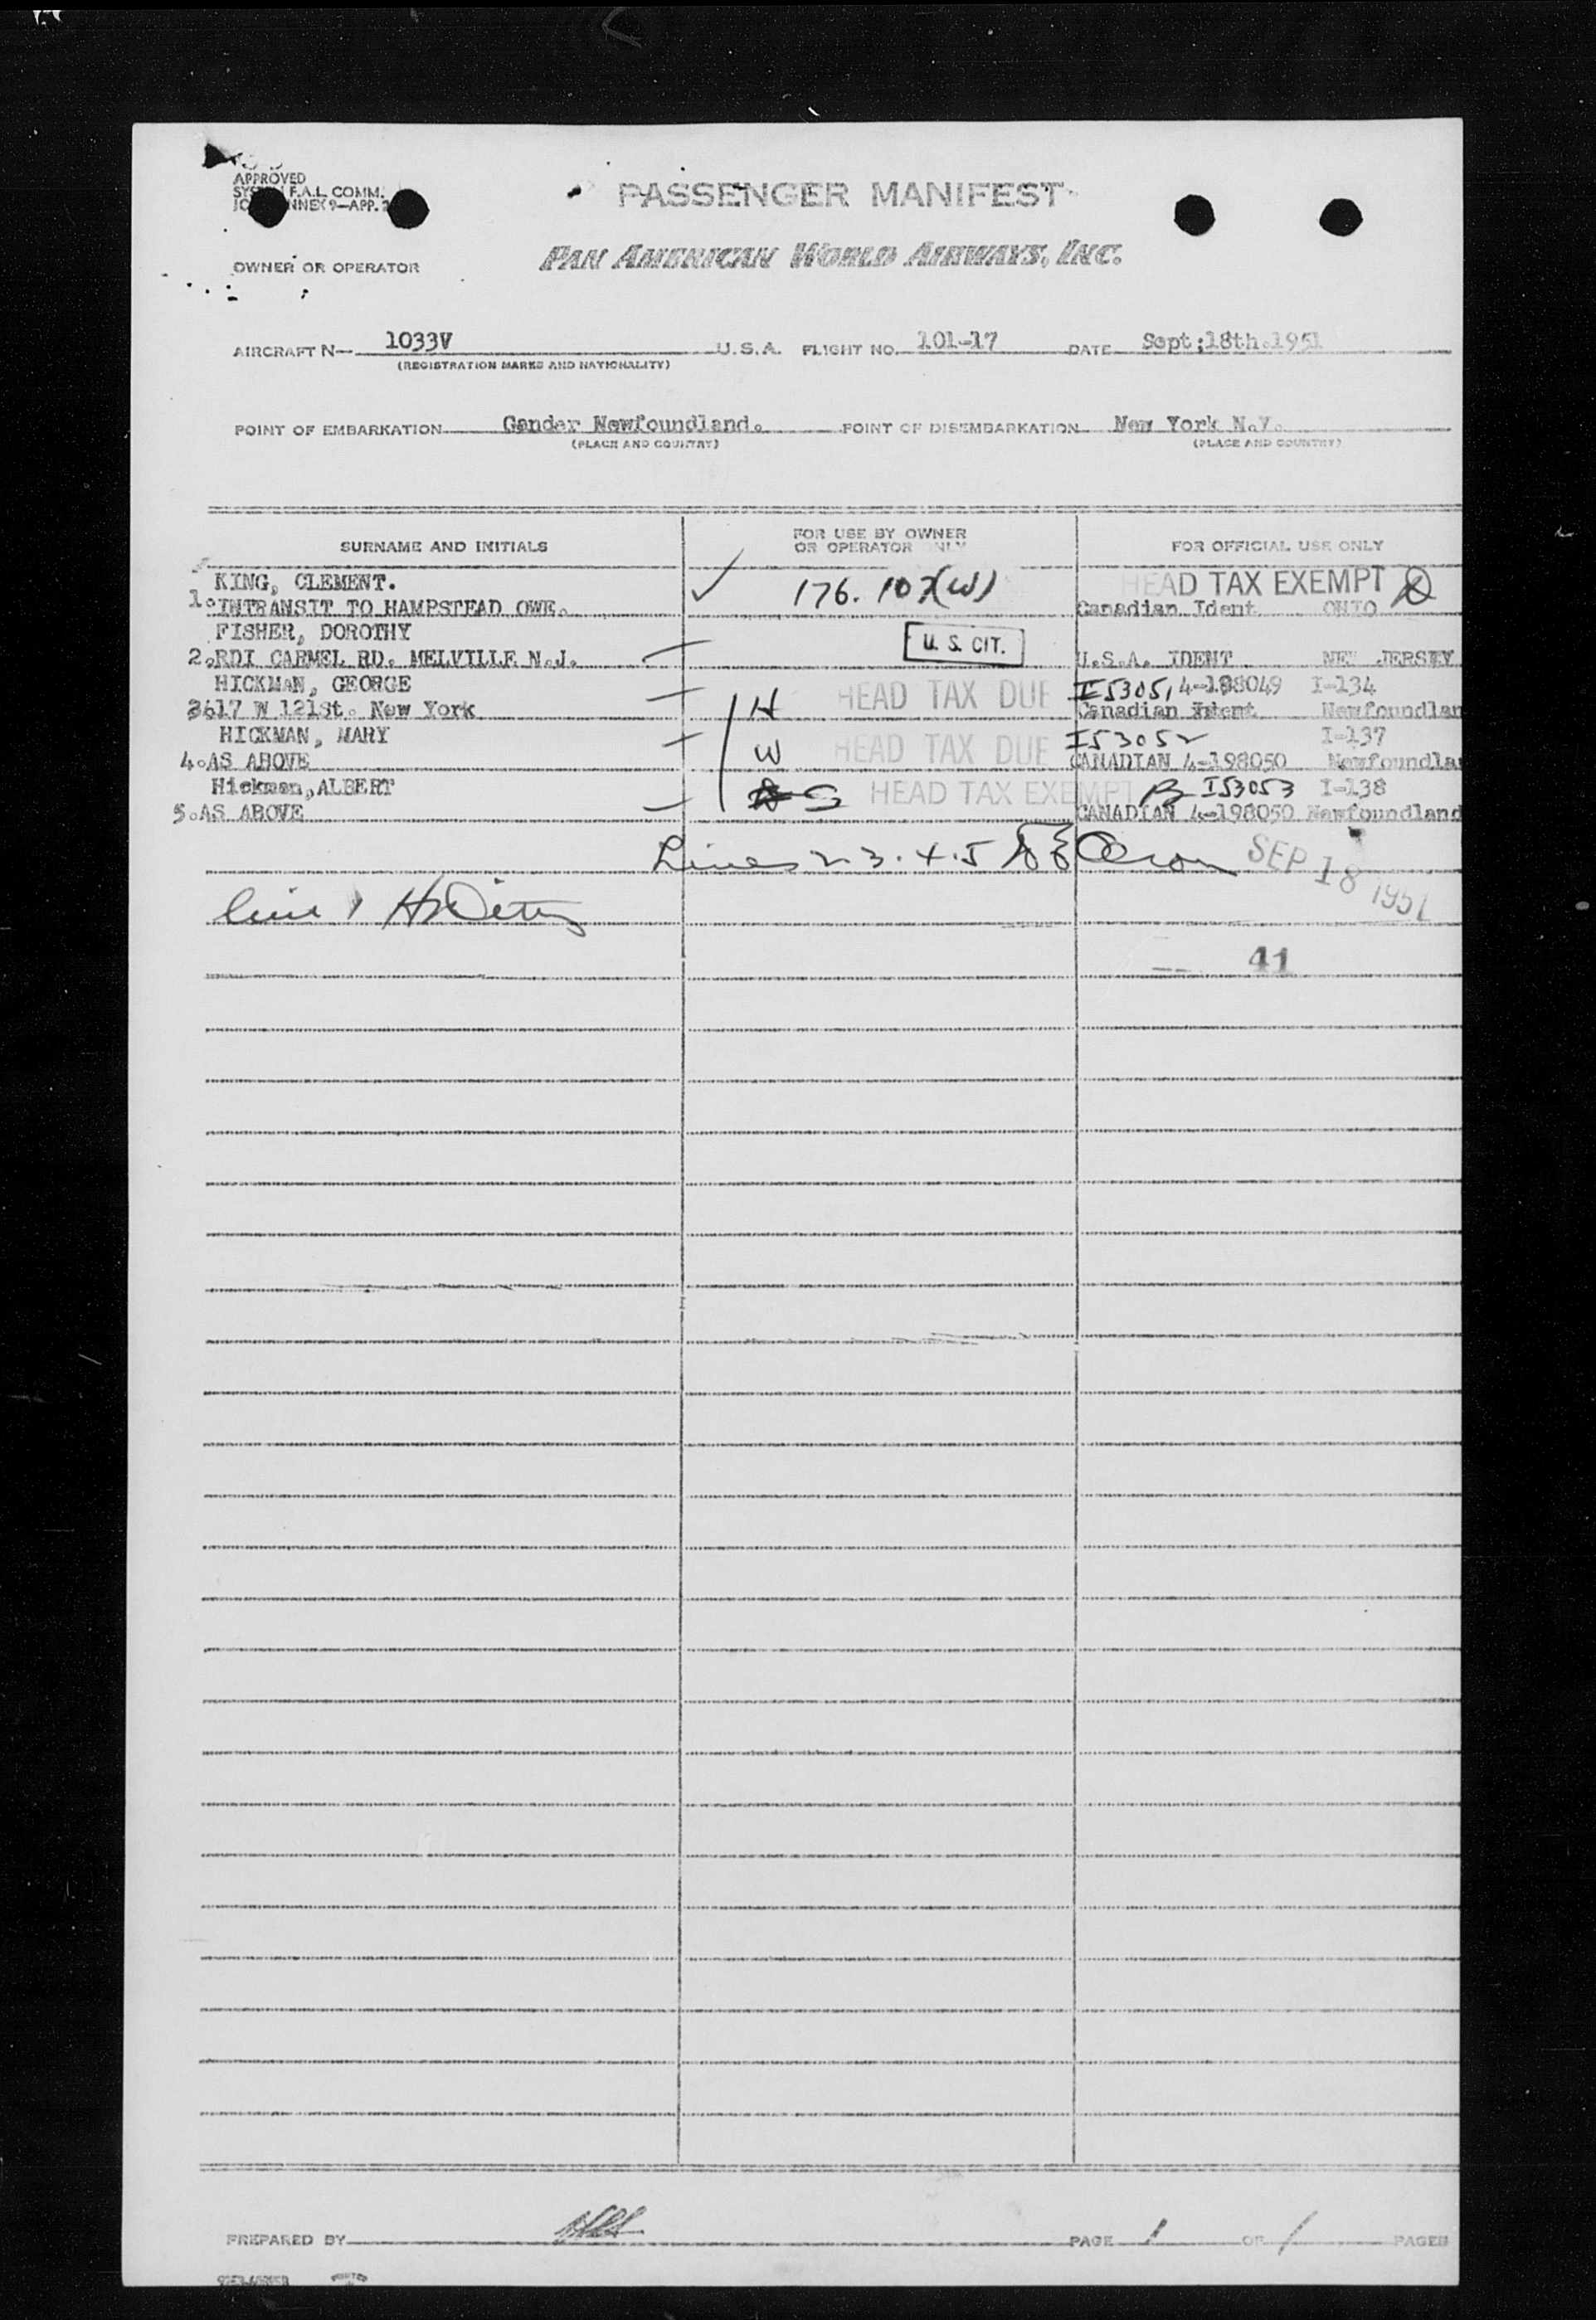 APPROVED
F.A.L. COMM.
ANNEX 9—APP.
PASSENGER MANIFEST
PAN AMERICAN WORLD AIRWAYS, INC.
OWNER OR OPERATOR
AIRCRAFT N— 1033V U.S.A. FLIGHT NO. 101-17 DATE Sept;18th.1951
(REGISTRATION MARKS AND NATIONALITY)
POINT OF EMBARKATION Gander Newfoundland. POINT OF DISEMBARKATION New York N.Y.
(PLACE AND COUNTRY) (PLACE AND COUNTRY)
SURNAME AND INITIALS FOR USE BY OWNER OR OPERATOR ONLY FOR OFFICIAL USE ONLY
KING, CLEMENT. HEAD TAX EXEMPT
1.INTRANSIT TO HAMPSTEAD OWE. 176.107(W) Canadian Ident OHIO
FISHER, DOROTHY U. S. CIT.
2.RDI CARMEL RD. MELVILLE N.J. U.S.A. IDENT NEW JERSEY
HICKMAN, GEORGE HEAD TAX DUE I53051 4-198049 I-134
3617 W 121St. New York H Canadian Ident Newfoundlan
HICKMAN, MARY HEAD TAX DUE I53052 I-137
4.AS ABOVE W CANADIAN 4-198050 Newfoundla
Hickman,ALBERT HEAD TAX EXEMPT I53053 I-138
5.AS ABOVE S CANADIAN 4-198050 Newfoundland
Lines 2.3.4.5 SEP 18 1951
line 1
41
PREPARED BY PAGE 1 OF 1 PAGES